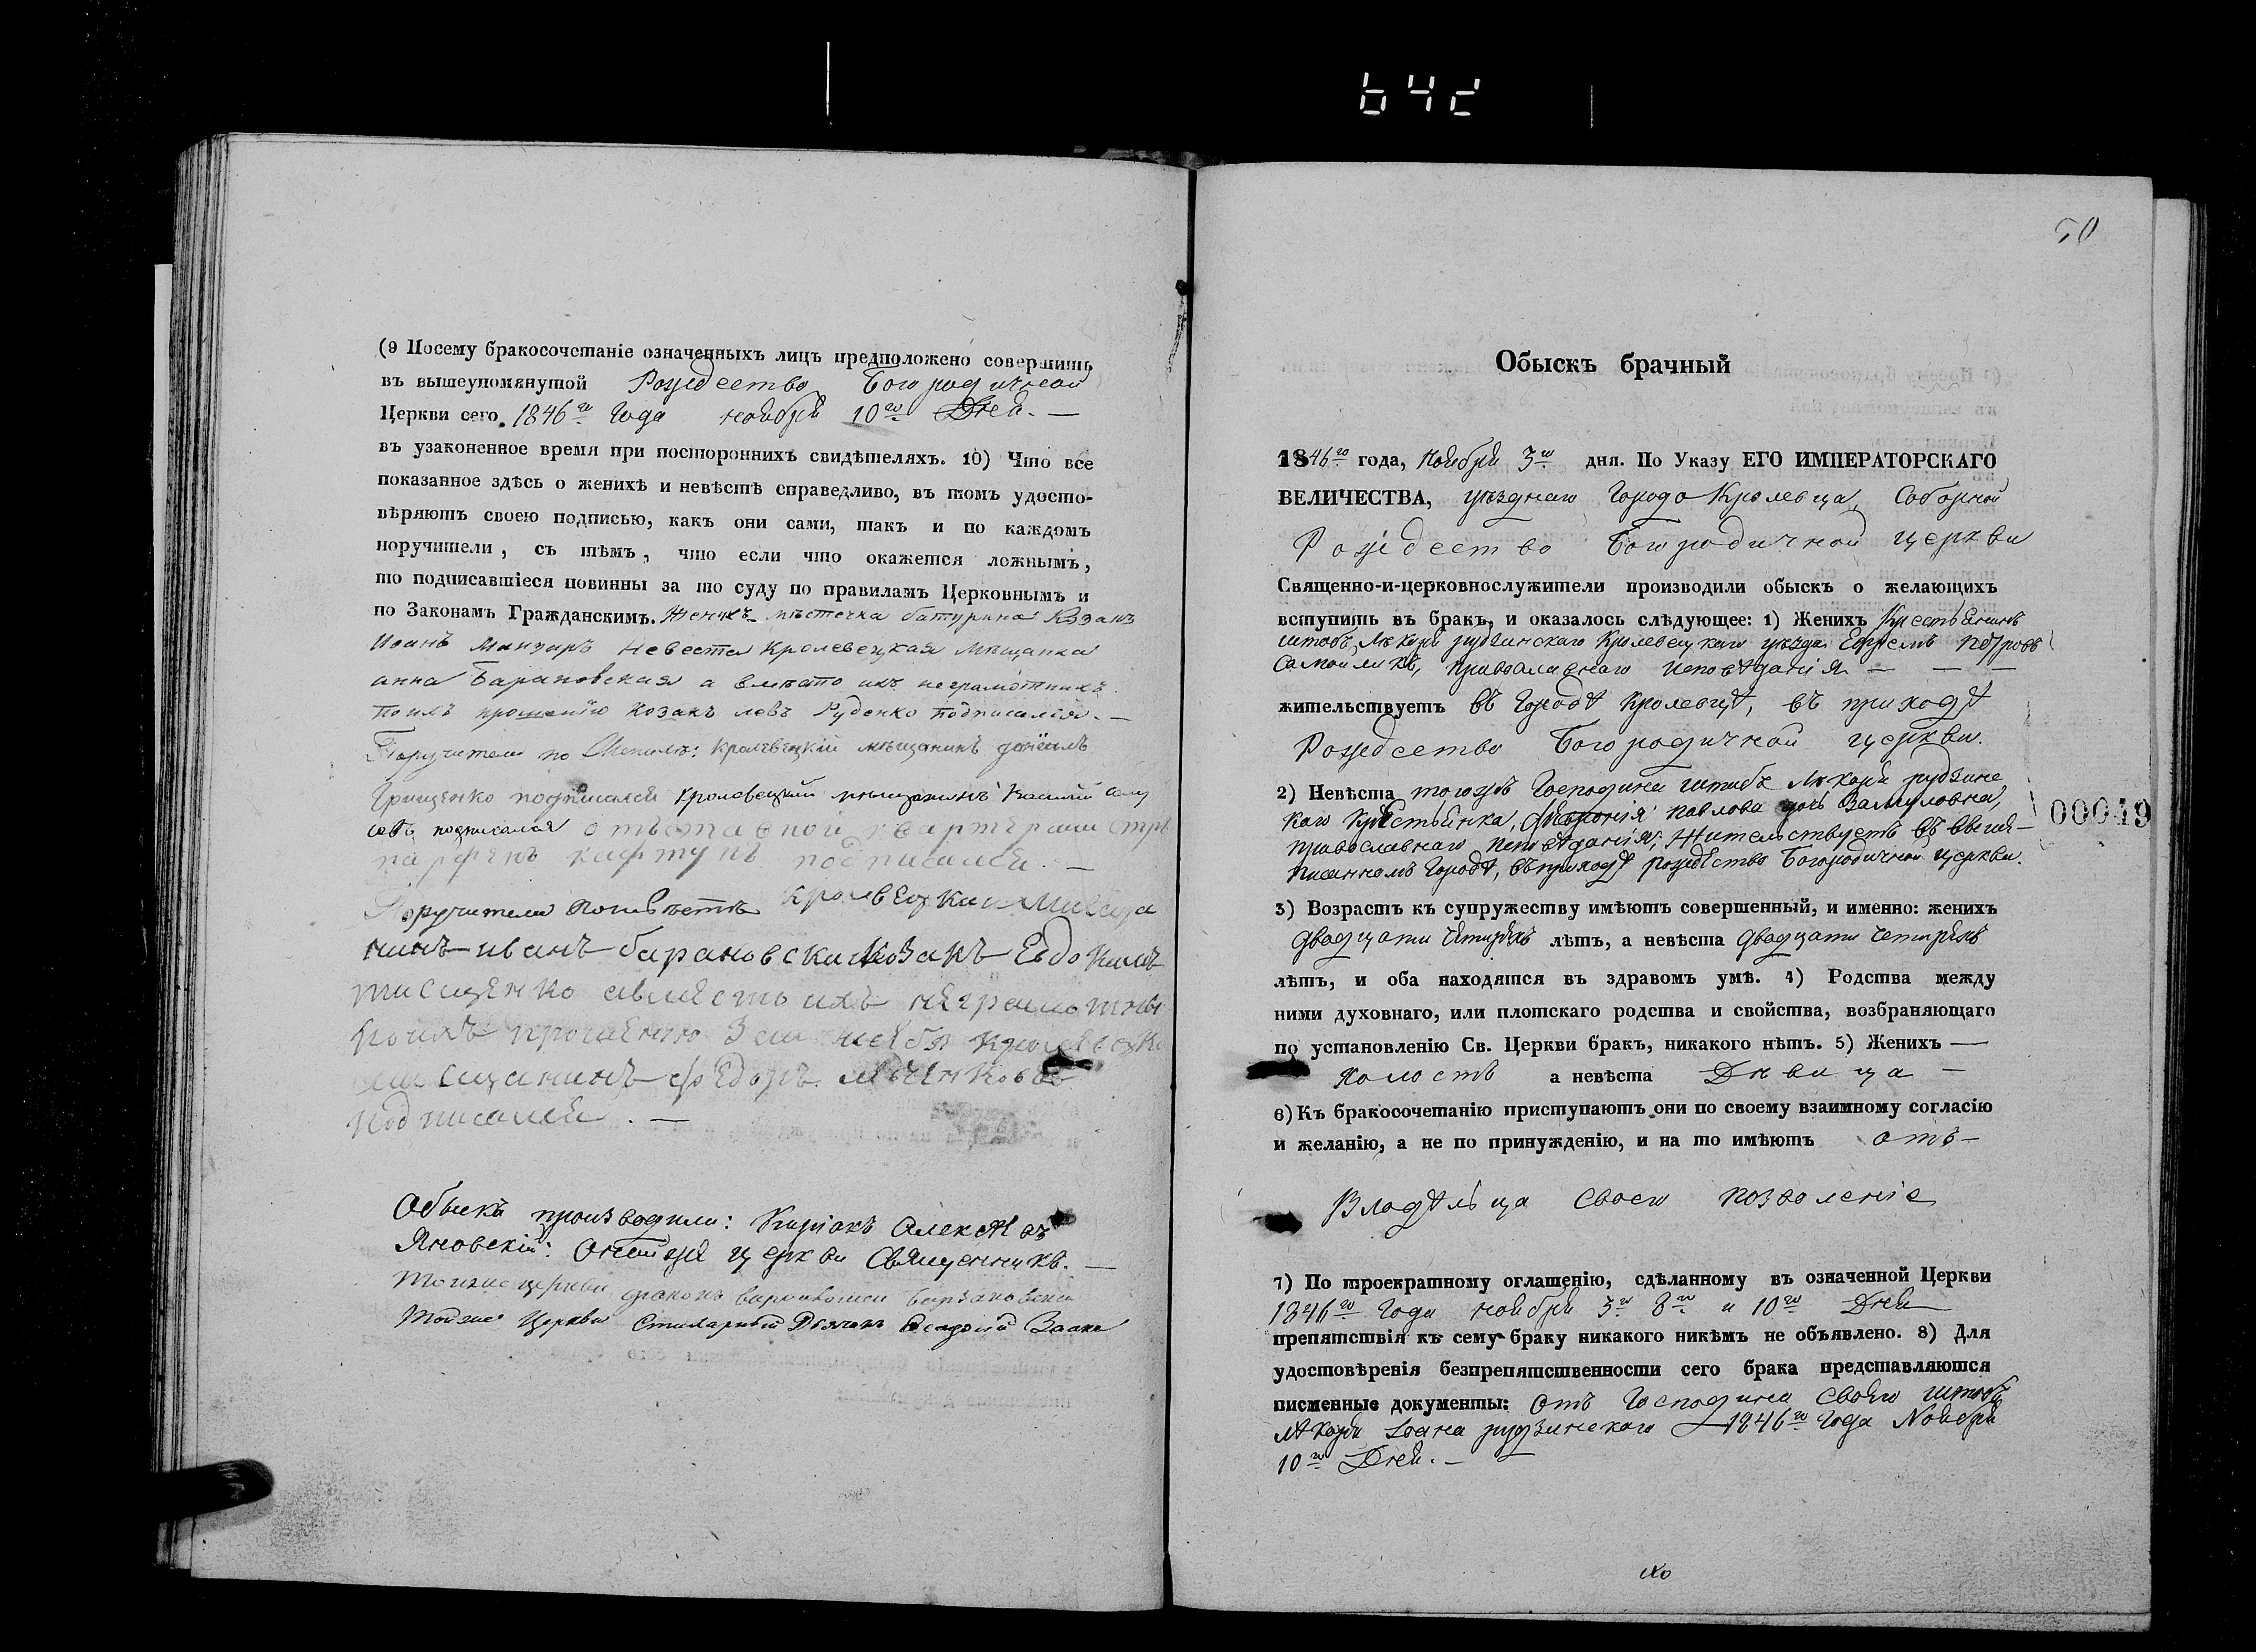 642
(9 Посему бракосочетаніе означенныхъ лицъ предположено совершить
въ вышеупомянутой Рождество Богородичной
Церкви сего 1846го Года ноября 10го Дня. —
въ узаконенное время при постороннихъ свидѣтеляхъ. 10) Что все
показанное здѣсь о женихѣ и невѣстѣ справедливо, въ томъ удосто-
вѣряютъ своею подписью, какъ они сами, такъ и по каждомъ
поручители, съ тѣмъ, что если что окажется ложнымъ,
то подписавшіеся повинны за то суду по правиламъ Церковнымъ и
по Законамъ Гражданскимъ. Женихъ мѣстечка батурина Козакъ
Иоанъ Манжаръ Невеста Кролевецкая Мѣщанка
анна Барановская а вместо ихъ неграмотныхъ
поихъ прошенію козакъ левъ Руденко подписался. —
Поручители по Женихѣ: Кролевецкій мѣщанинъ
Грищенко подписался Кролевецкій мѣщанинъ Василий
подписался отъставной
подписался. —
Поручители поневѣстѣ Кролвецкий Мисща
нинъ иванъ барановски Козакъ Евдокимъ
тисщенко авместо ихъ неграмотны
поихъ прошению
мисщанинъ федоръ
подписался. —
Обыскъ производили: Киріакъ Алексѣевъ
Яновскій: Онойже церкви Священникъ. —
тоиже церкви
Тойже Церкви Стихарный Дьячокъ
50
Обыскъ брачный
1846го года, Ноября 3го дня. По Указу ЕГО ИМПЕРАТОРСКАГО
ВЕЛИЧЕСТВА, уѣзднаго Города Кролевца, Соборной
Рождество Богородичной церкви
Священно-и-церковнослужители производили обыскъ о желающихъ
вступить въ бракъ, и оказалось слѣдующее: 1) Женихъ Крестьянинъ
штабъ лѣкаря рудзинскаго Кролевецкаго уѣзда Ефремъ Петровъ
Самойликъ, православнаго исповѣданія — — —
жительствуетъ въ Городѣ Кролевцѣ, въ приходѣ
Рождество Богородичной церкви.
2) Невѣста тогожъ Господина штабъ Лѣкаря рудзинс
каго Крестьянка, Февронія павлова дочь
православнаго исповѣданія; Жительствуетъ въ вышеи-
писанномъ Городѣ, въ приходѣ рождество Богородичной церкви.
00049
3) Возрастъ къ супружеству имѣютъ совершенный, и именно: женихъ
двадцати четирехъ лѣтъ, а невѣста двадцати четирехъ
лѣтъ, и оба находятся въ здравомъ умѣ. 4) Родства между
ними духовнаго, или плотскаго родства и свойства, возбраняющаго
по установленію Св. Церкви бракъ, никакого нѣтъ. 5) Женихъ —
Холостъ а невѣста Дѣвица —
6) Къ бракосочетанію приступаютъ они по своему взаимному согласію
и желанію, а не по принужденію, и на то имѣютъ отъ —
Владѣльца своего позволеніе
7) По троекратному оглашенію, сдѣланному въ означенной Церкви
1846го Года ноября 3го 8го и 10го Дня
препятствія къ сему браку никакого никѣмъ не объявлено. 8) Для
удостовѣренія безпрепятственности сего брака представляются
писменные документы: отъ Господина своего штабъ
лѣкаря Іоана рудзинскаго 1846го Года Ноября
10го Дня. —